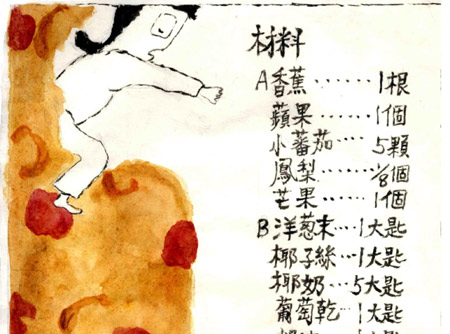 材料
A香蕉⋯⋯1根
蘋果⋯⋯1個
小蕃茄⋯⋯5顆
鳳梨⋯⋯1/8個
芒果⋯⋯1個
B洋葱末⋯1大匙
椰子絲⋯1大匙
椰奶⋯5大匙
葡萄乾⋯1大匙